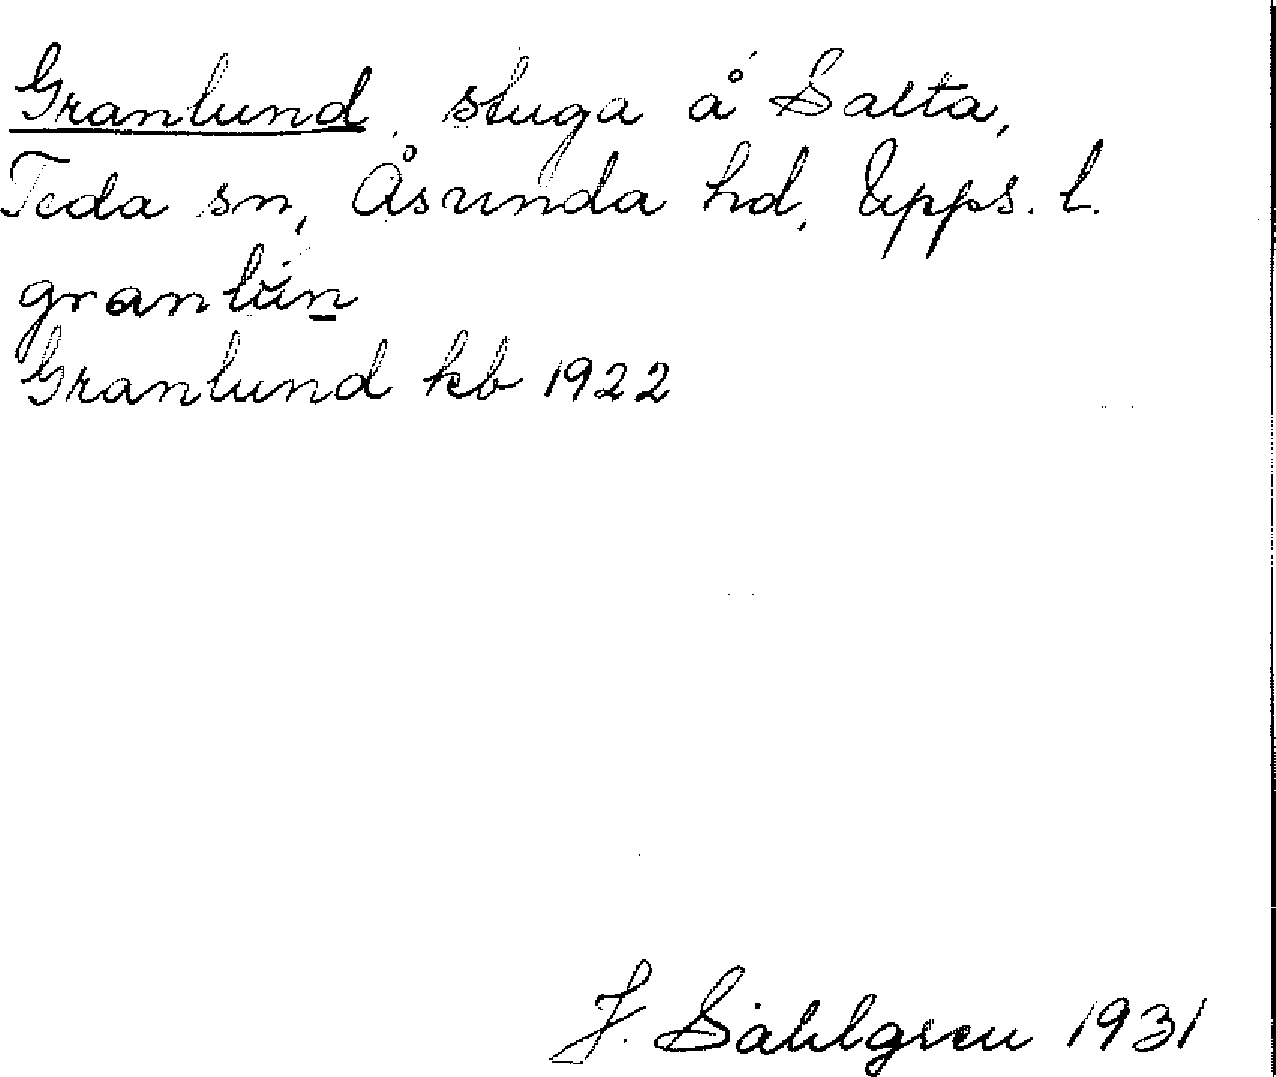 Granlund, stuga å Salta,
Teda sn, Åsunda hd, Upps. l.
granlŭn
Granlund kb 1922
J. Sahlgren 1931